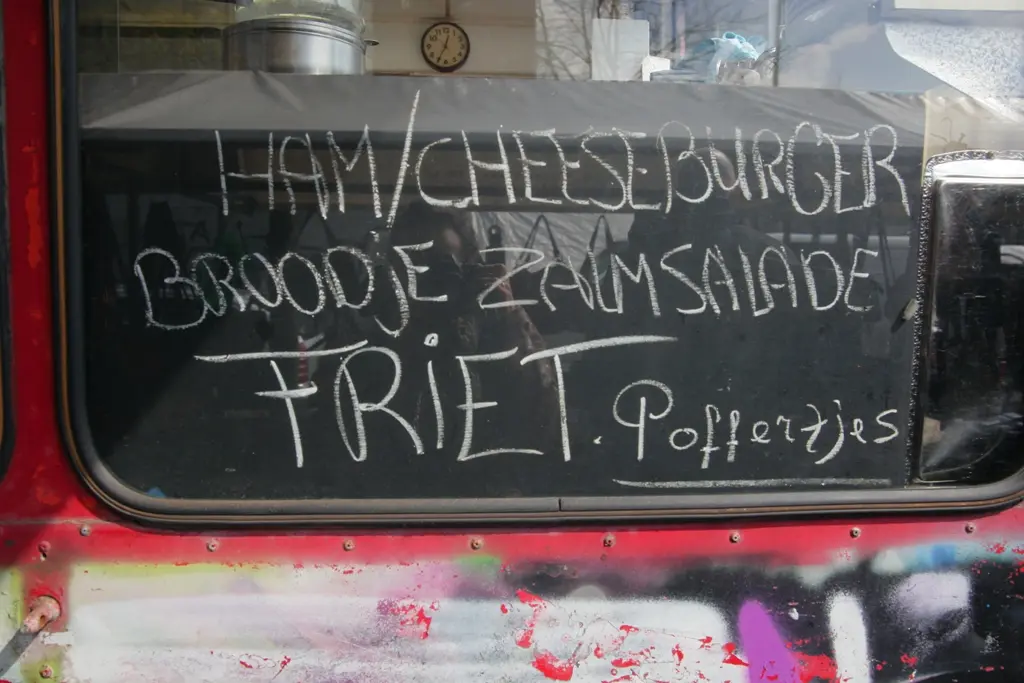 HAM/CHEESEBURGER
BROODJE ZALMSALADE
FRIET. Poffertjes